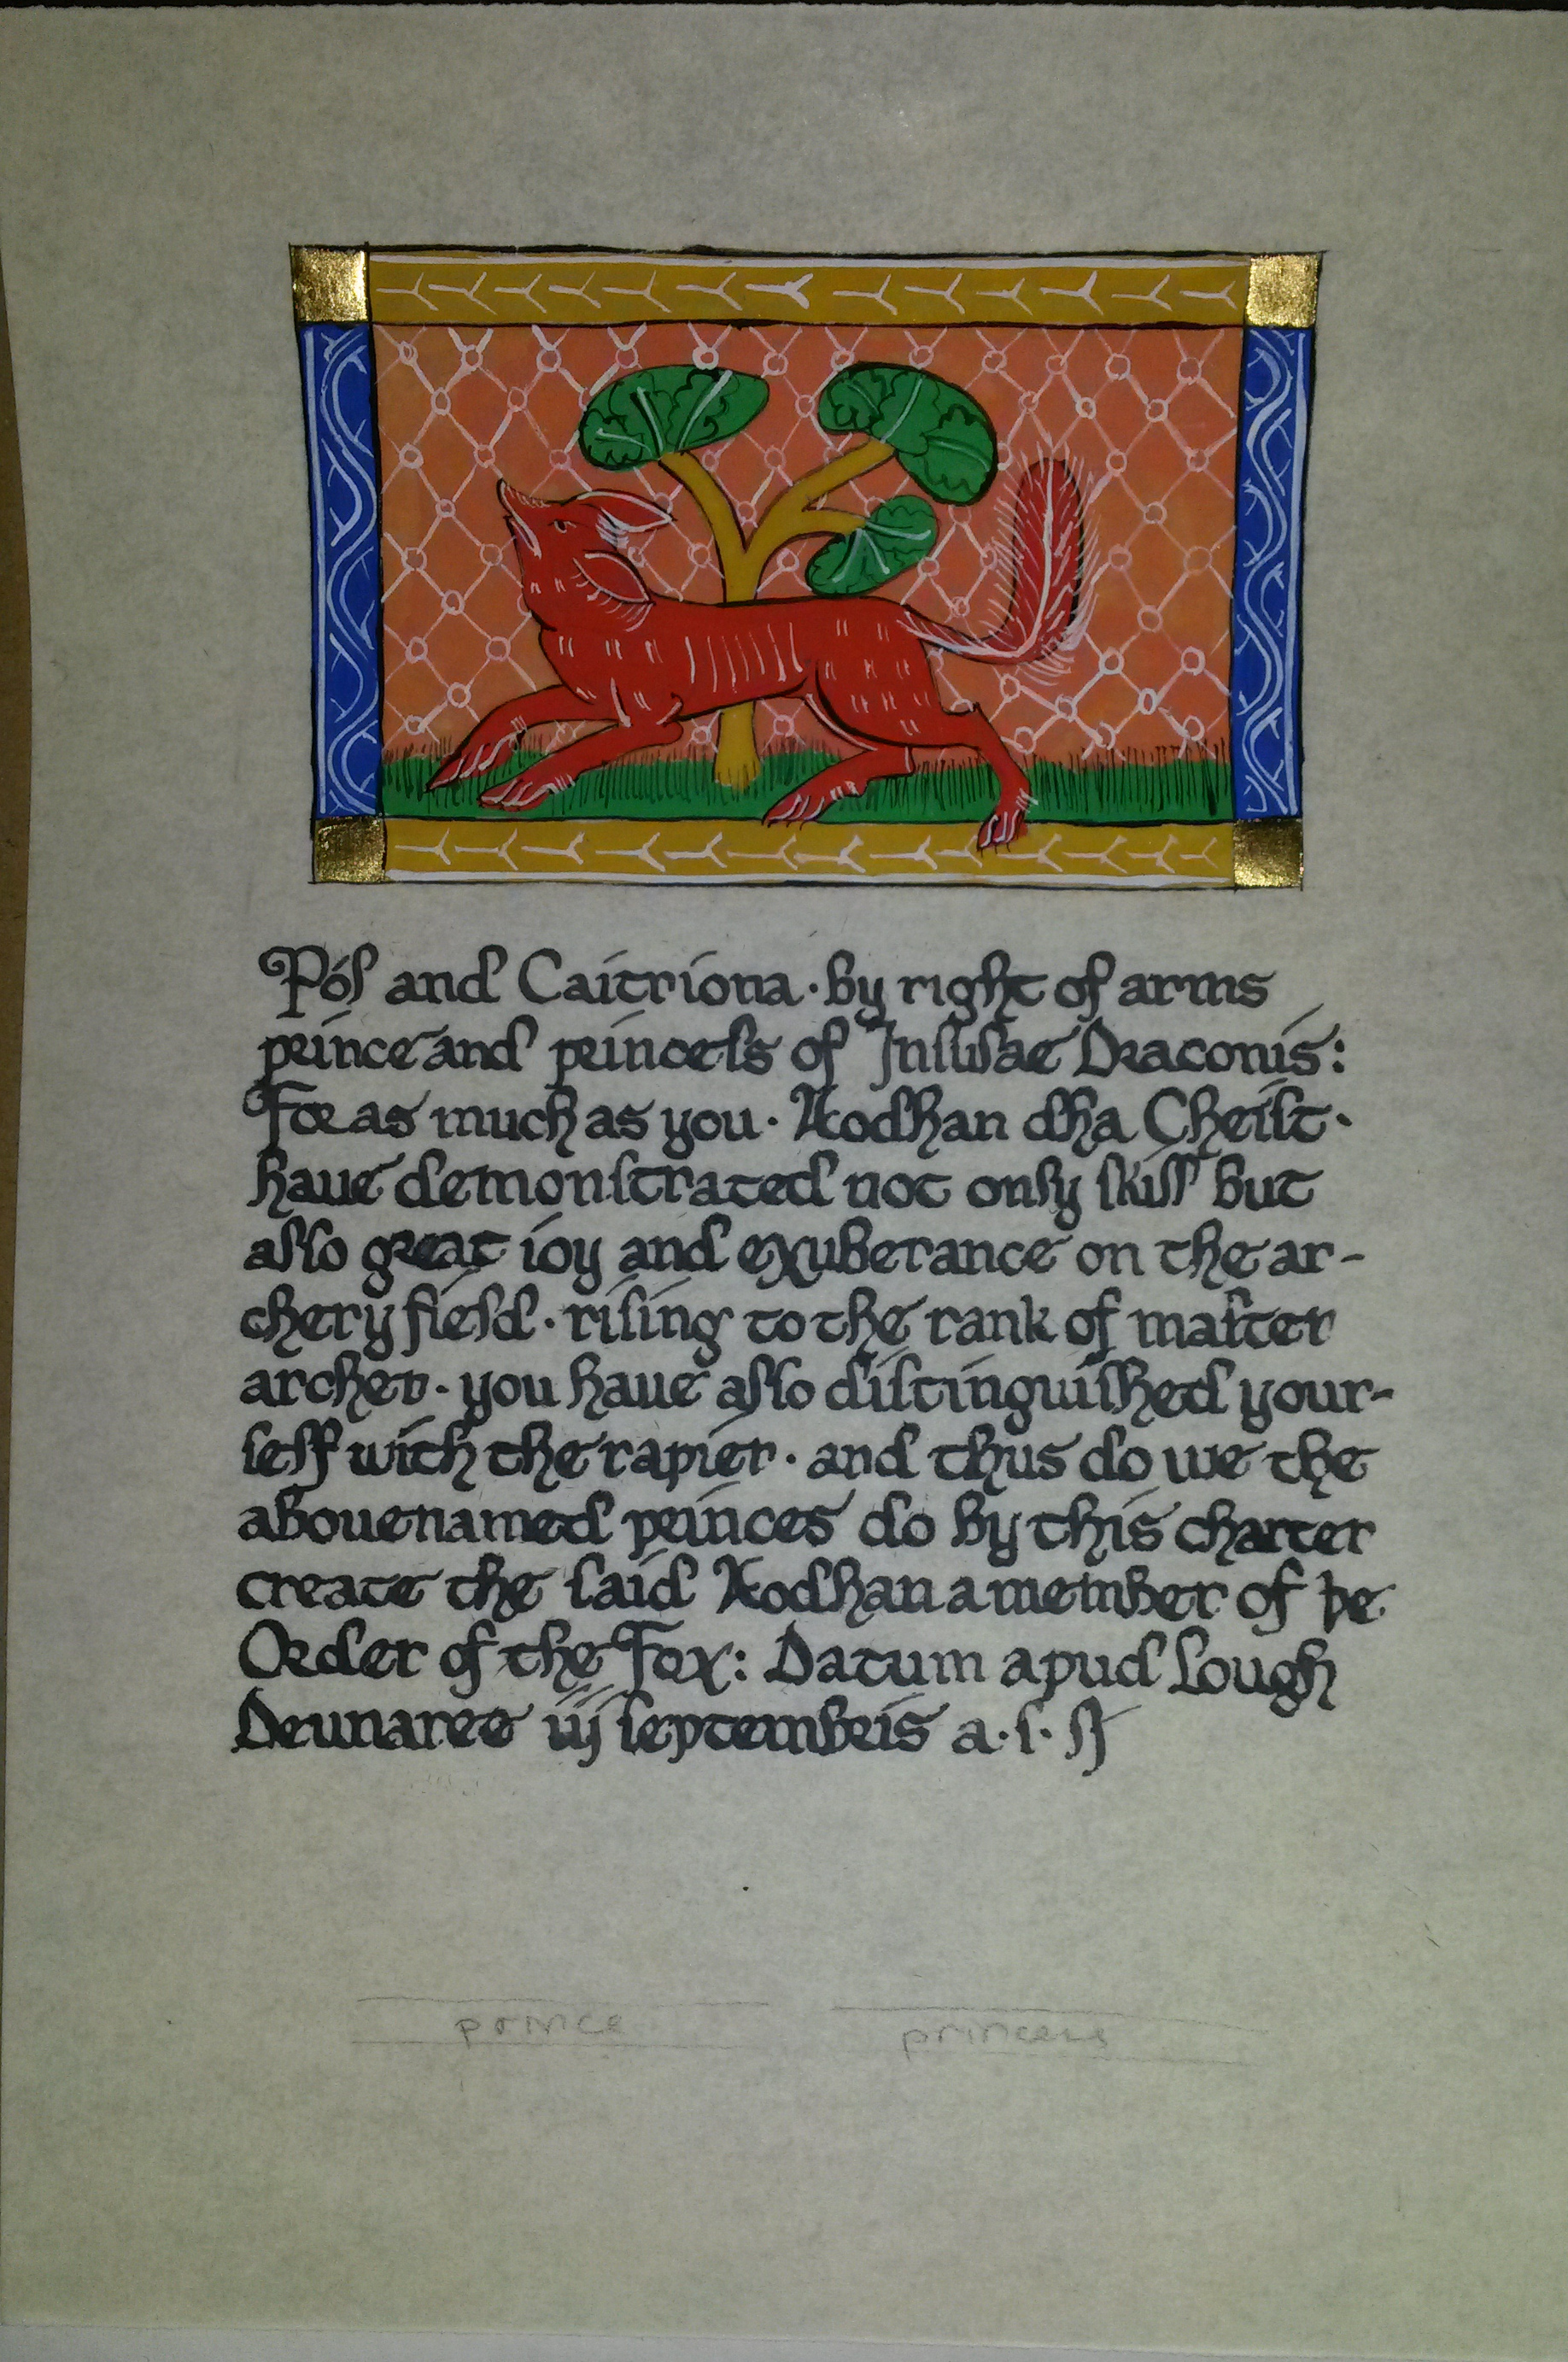 Pól and Caitriona · by right of arms
prince and princeſs of Inſulae Draconis:
For as much as you · Aodhan dha Cheilt ·
haue demonſtrated not only ſkill but
alſo great ioy and exuberance on the ar-
chery field · riſing to the rank of maſter
archer · you haue alſo diſtinguiſhed your-
ſelf with the rapier · and thus do we the
abouenamed princes do by this charter
create the ſaid Aodhan a member of þe
Order of the Fox: Datum apud Lough
Deunaree iij ſeptembris a · s ·
prince princess